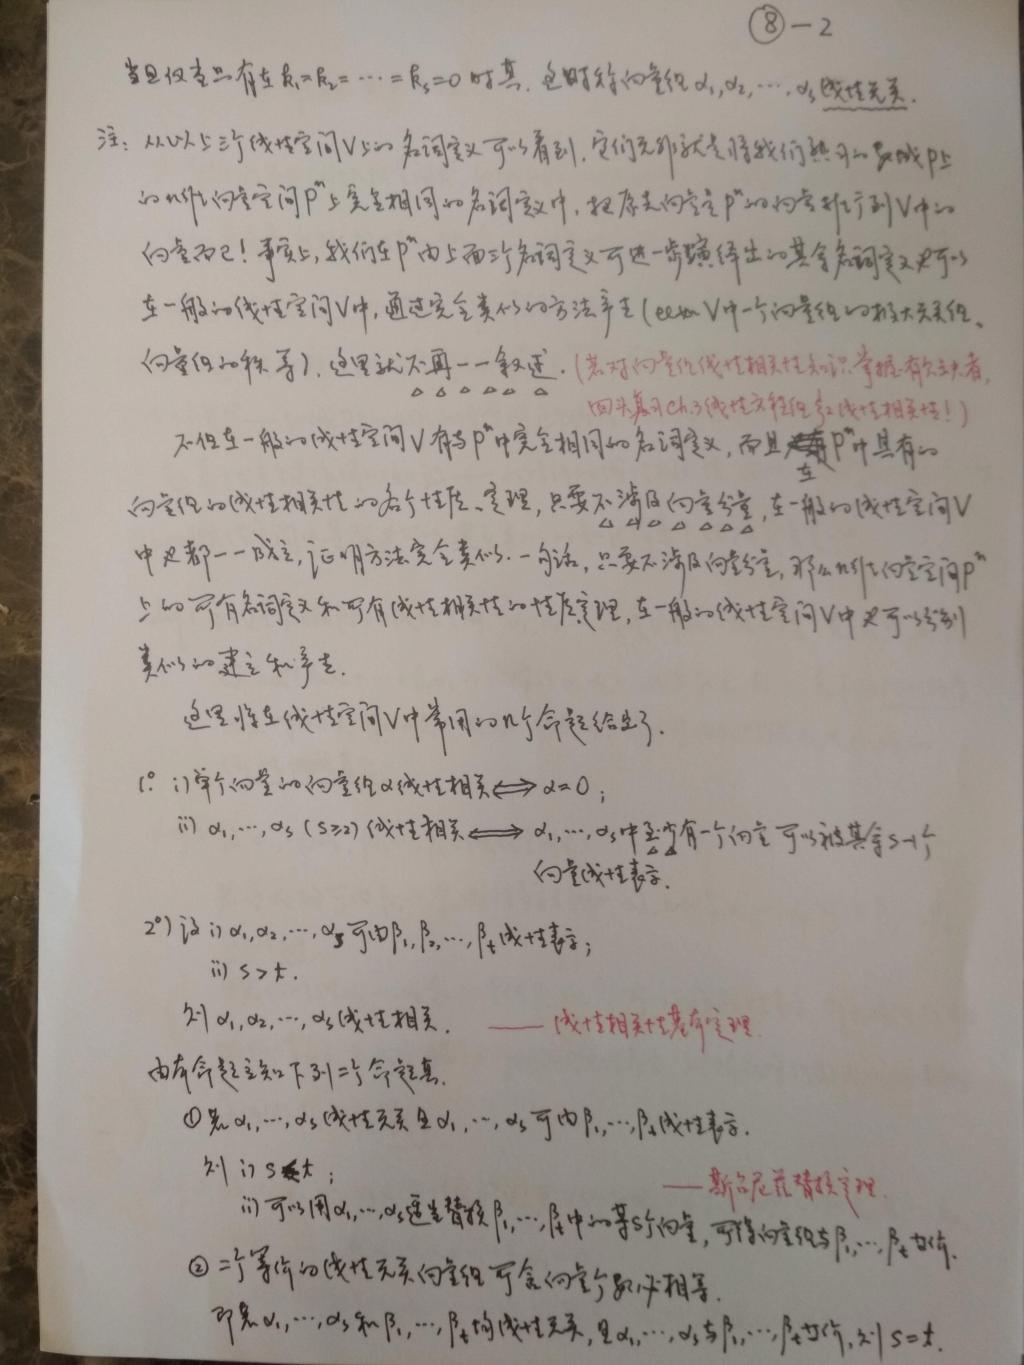 ⑧-2
当且仅当只有在k₁=k₂=⋯=kₛ=0时真. 这时称向量组α₁,α₂,⋯,αₛ线性无关.
注: 从以上三个线性空间V上的名词定义可以看到, 它们无非就是将我们熟习的数域P上
的n维向量空间Pⁿ上完全相同的名词定义中, 把原先向量空Pⁿ的向量推行到V中的
向量而已! 事实上, 我们在Pⁿ由上面三个名词定义可进一步演绎出的其余名词定义也可以
在一般的线性空间V中, 通过完全类似的方法产生(V中一个向量组的极大无关组、
向量组的秩等). 这里就不再一一叙述. (若对向量组线性相关性知识掌握有欠缺者,
回头复习ch.3线性方程组 线性相关性!)
不但在一般的线性空间V有与Pⁿ中完全相同的名词定义, 而且在Pⁿ中具有的
向量组的线性相关性的各个性质、定理, 只要不涉及向量分量, 在一般的线性空间V
中也都一一成立, 证明方法完全类似. 一句话, 只要不涉及向量分量, 那么n维向量空间Pⁿ
上的所有名词定义和所有线性相关性的性质定理, 在一般的线性空间V中也可以分别
类似的建立和产生.
这里将在线性空间V中常用的几个命题给出了.
1°. i) 单个向量的向量组α线性相关⟺α=0;
ii) α₁,⋯,αₛ(s≥2)线性相关⟺α₁,⋯,αₛ中至少有一个向量可以被其余s-1个
向量线性表示.
2°) 设i) α₁,α₂,⋯,αₛ可由β₁,β₂,⋯,βₜ线性表示;
ii) s>t.
则α₁,α₂,⋯,αₛ线性相关. ——线性相关性基本定理.
由本命题立知下列二个命题真.
① 若α₁,⋯,αₛ线性无关且α₁,⋯,αₛ可由β₁,⋯,βₜ线性表示.
则 i) s≤t;
——斯台尼兹替换定理.
ii) 可以用α₁,⋯,αₛ适当替换β₁,⋯,βₜ中的某s个向量, 可得向量组与β₁,⋯,βₜ等价.
② 二个等价的线性无关向量组所含向量个数必相等.
即若α₁,⋯,αₛ和β₁,⋯,βₜ均线性无关, 且α₁,⋯,αₛ与β₁,⋯,βₜ等价, 则s=t.